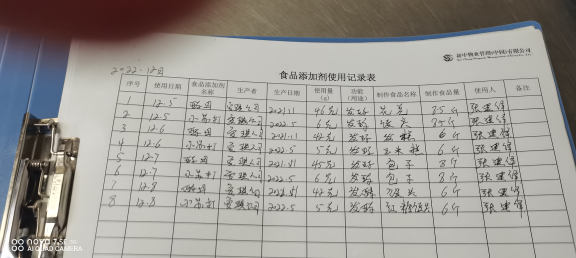 新中物业管理(中国)有限公司
2022.12月
食品添加剂使用记录表
序号 使用日期 食品添加剂名称 生产者 生产日期 使用量(g) 功能(用途) 制作食品名称 制作食品量 使用人 备注
1 12.5 安琪公司 2021.11 46克 发酵 7.5斤 张建伟
2 12.5 小苏打 安琪公司 2022.5 6克 发酵 张建伟
3 12.6 安琪公司 2021.11 42克 发酵 发糕 6斤 张建伟
4 12.6 小苏打 安琪公司 2022.5 5克 发酵 玉米糕 6斤 张建伟
5 12.7 安琪公司 2021.11 45克 发酵 包子 8斤 张建伟
6 12.7 小苏打 安琪公司 2022.5 6克 发酵 包子 8斤 张建伟
7 12.8 安琪公司 2021.11 42克 发酵 6斤 张建伟
8 12.8 小苏打 安琪公司 2022.5 5克 发酵 红糖馒头 6斤 张建伟
AI QUAD CAMERA